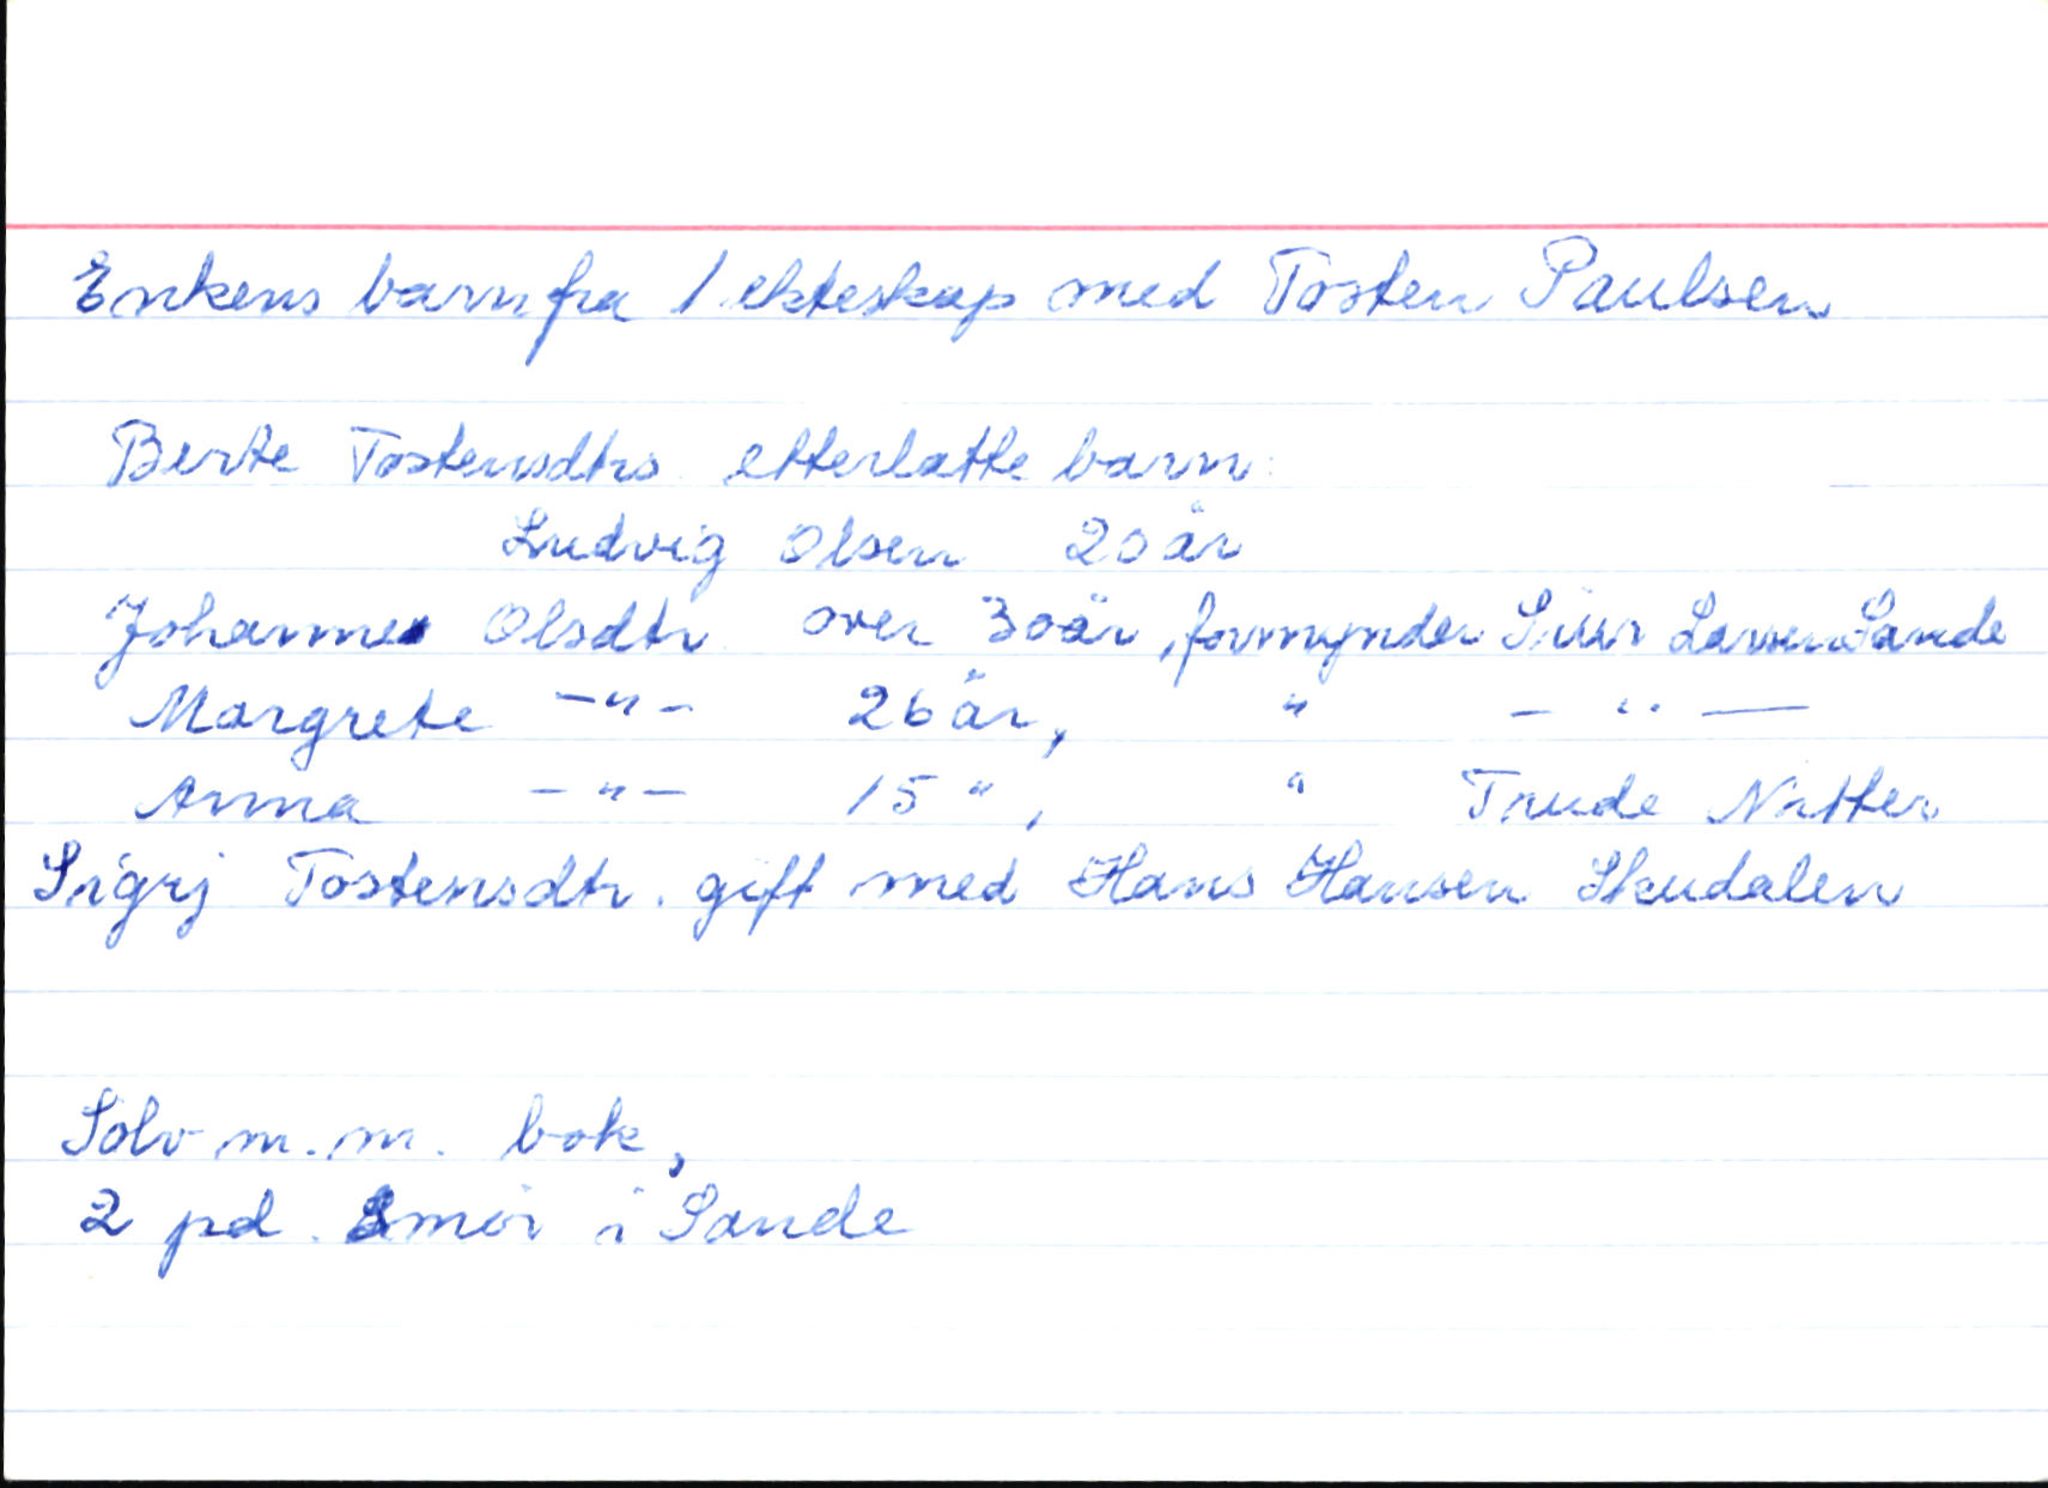 Enkens barn fra 1. ekteskap med Tosten Paulsen
Berte Tostensdtrs etterlatte barn:
Ludvig Olsen 20 år
Johanne Olsdtr over 30 år, formynder Siur Larsen Sande
Margrete -"- 26 år, " - " -
Anna -"- 15 ", " Trude Nitter
Sigrj Tostensdtr. gift med Hans Hansen Skudalen
Sølv m.m. bok,
2 pd. Smør i Sande